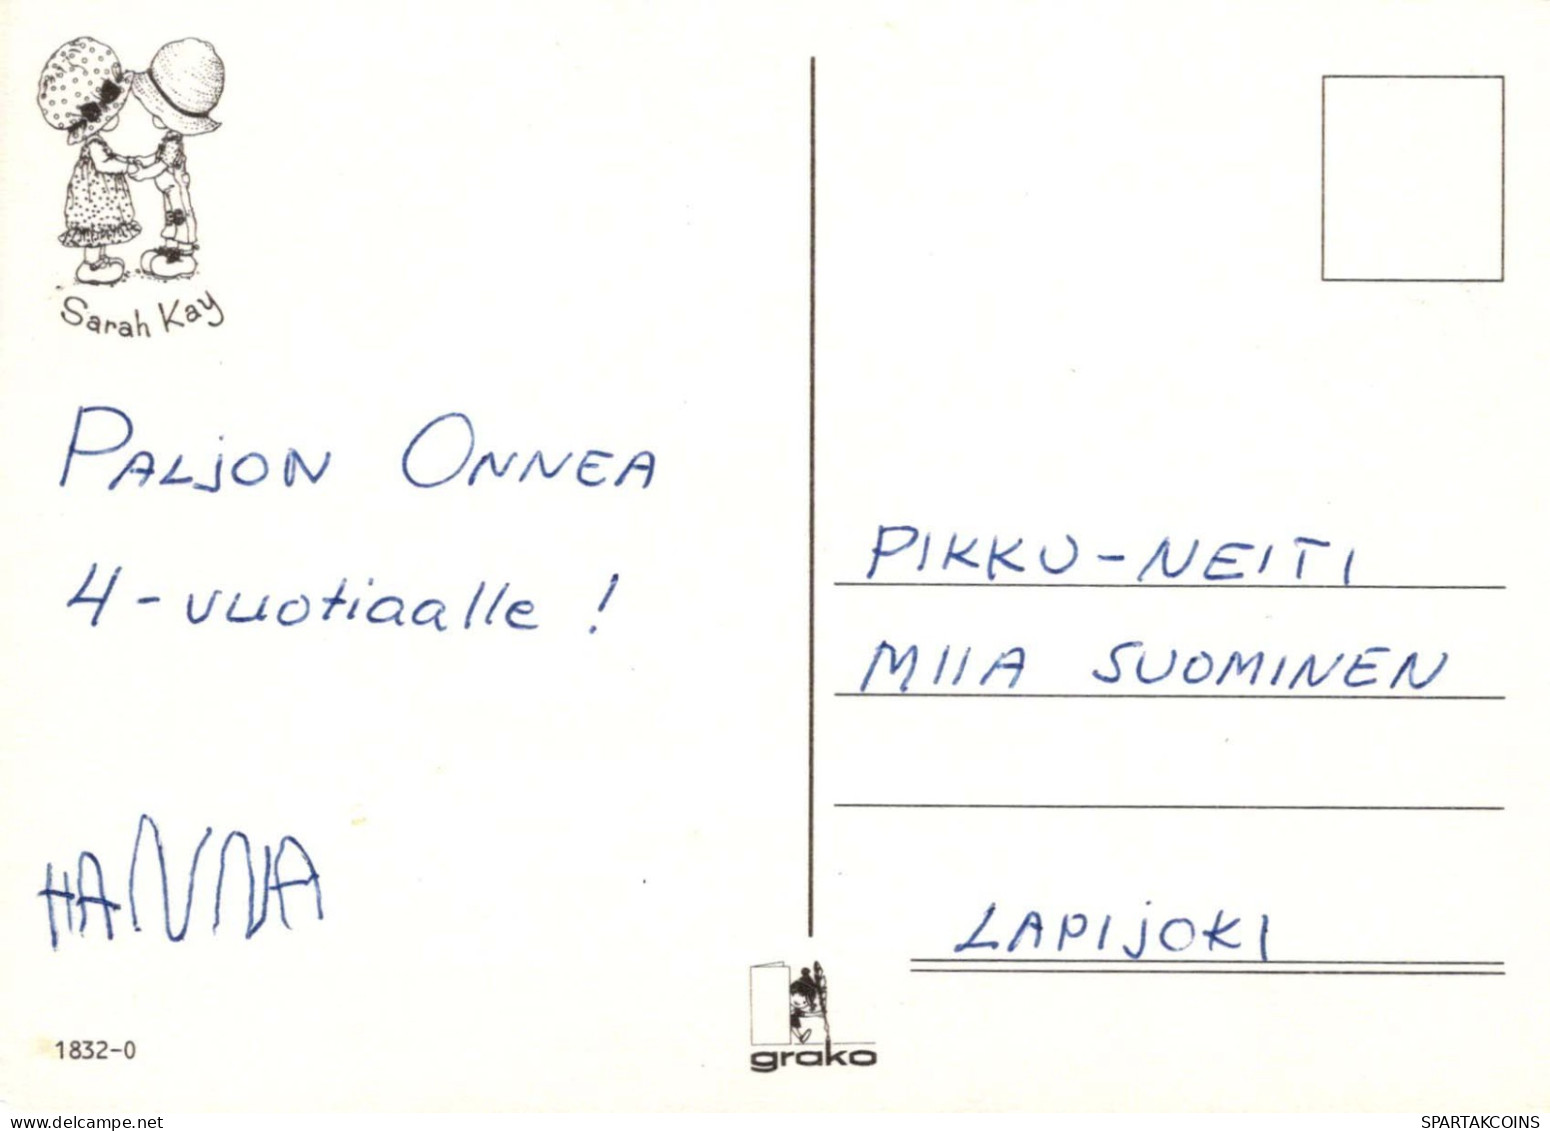 Sarah Kay
PALJON ONNEA
4-vuotiaalle !
HANNA
1832-0
PIKKU-NEITI
MIIA SUOMINEN
LAPIJOKI
grako
SPARTAKCOINS